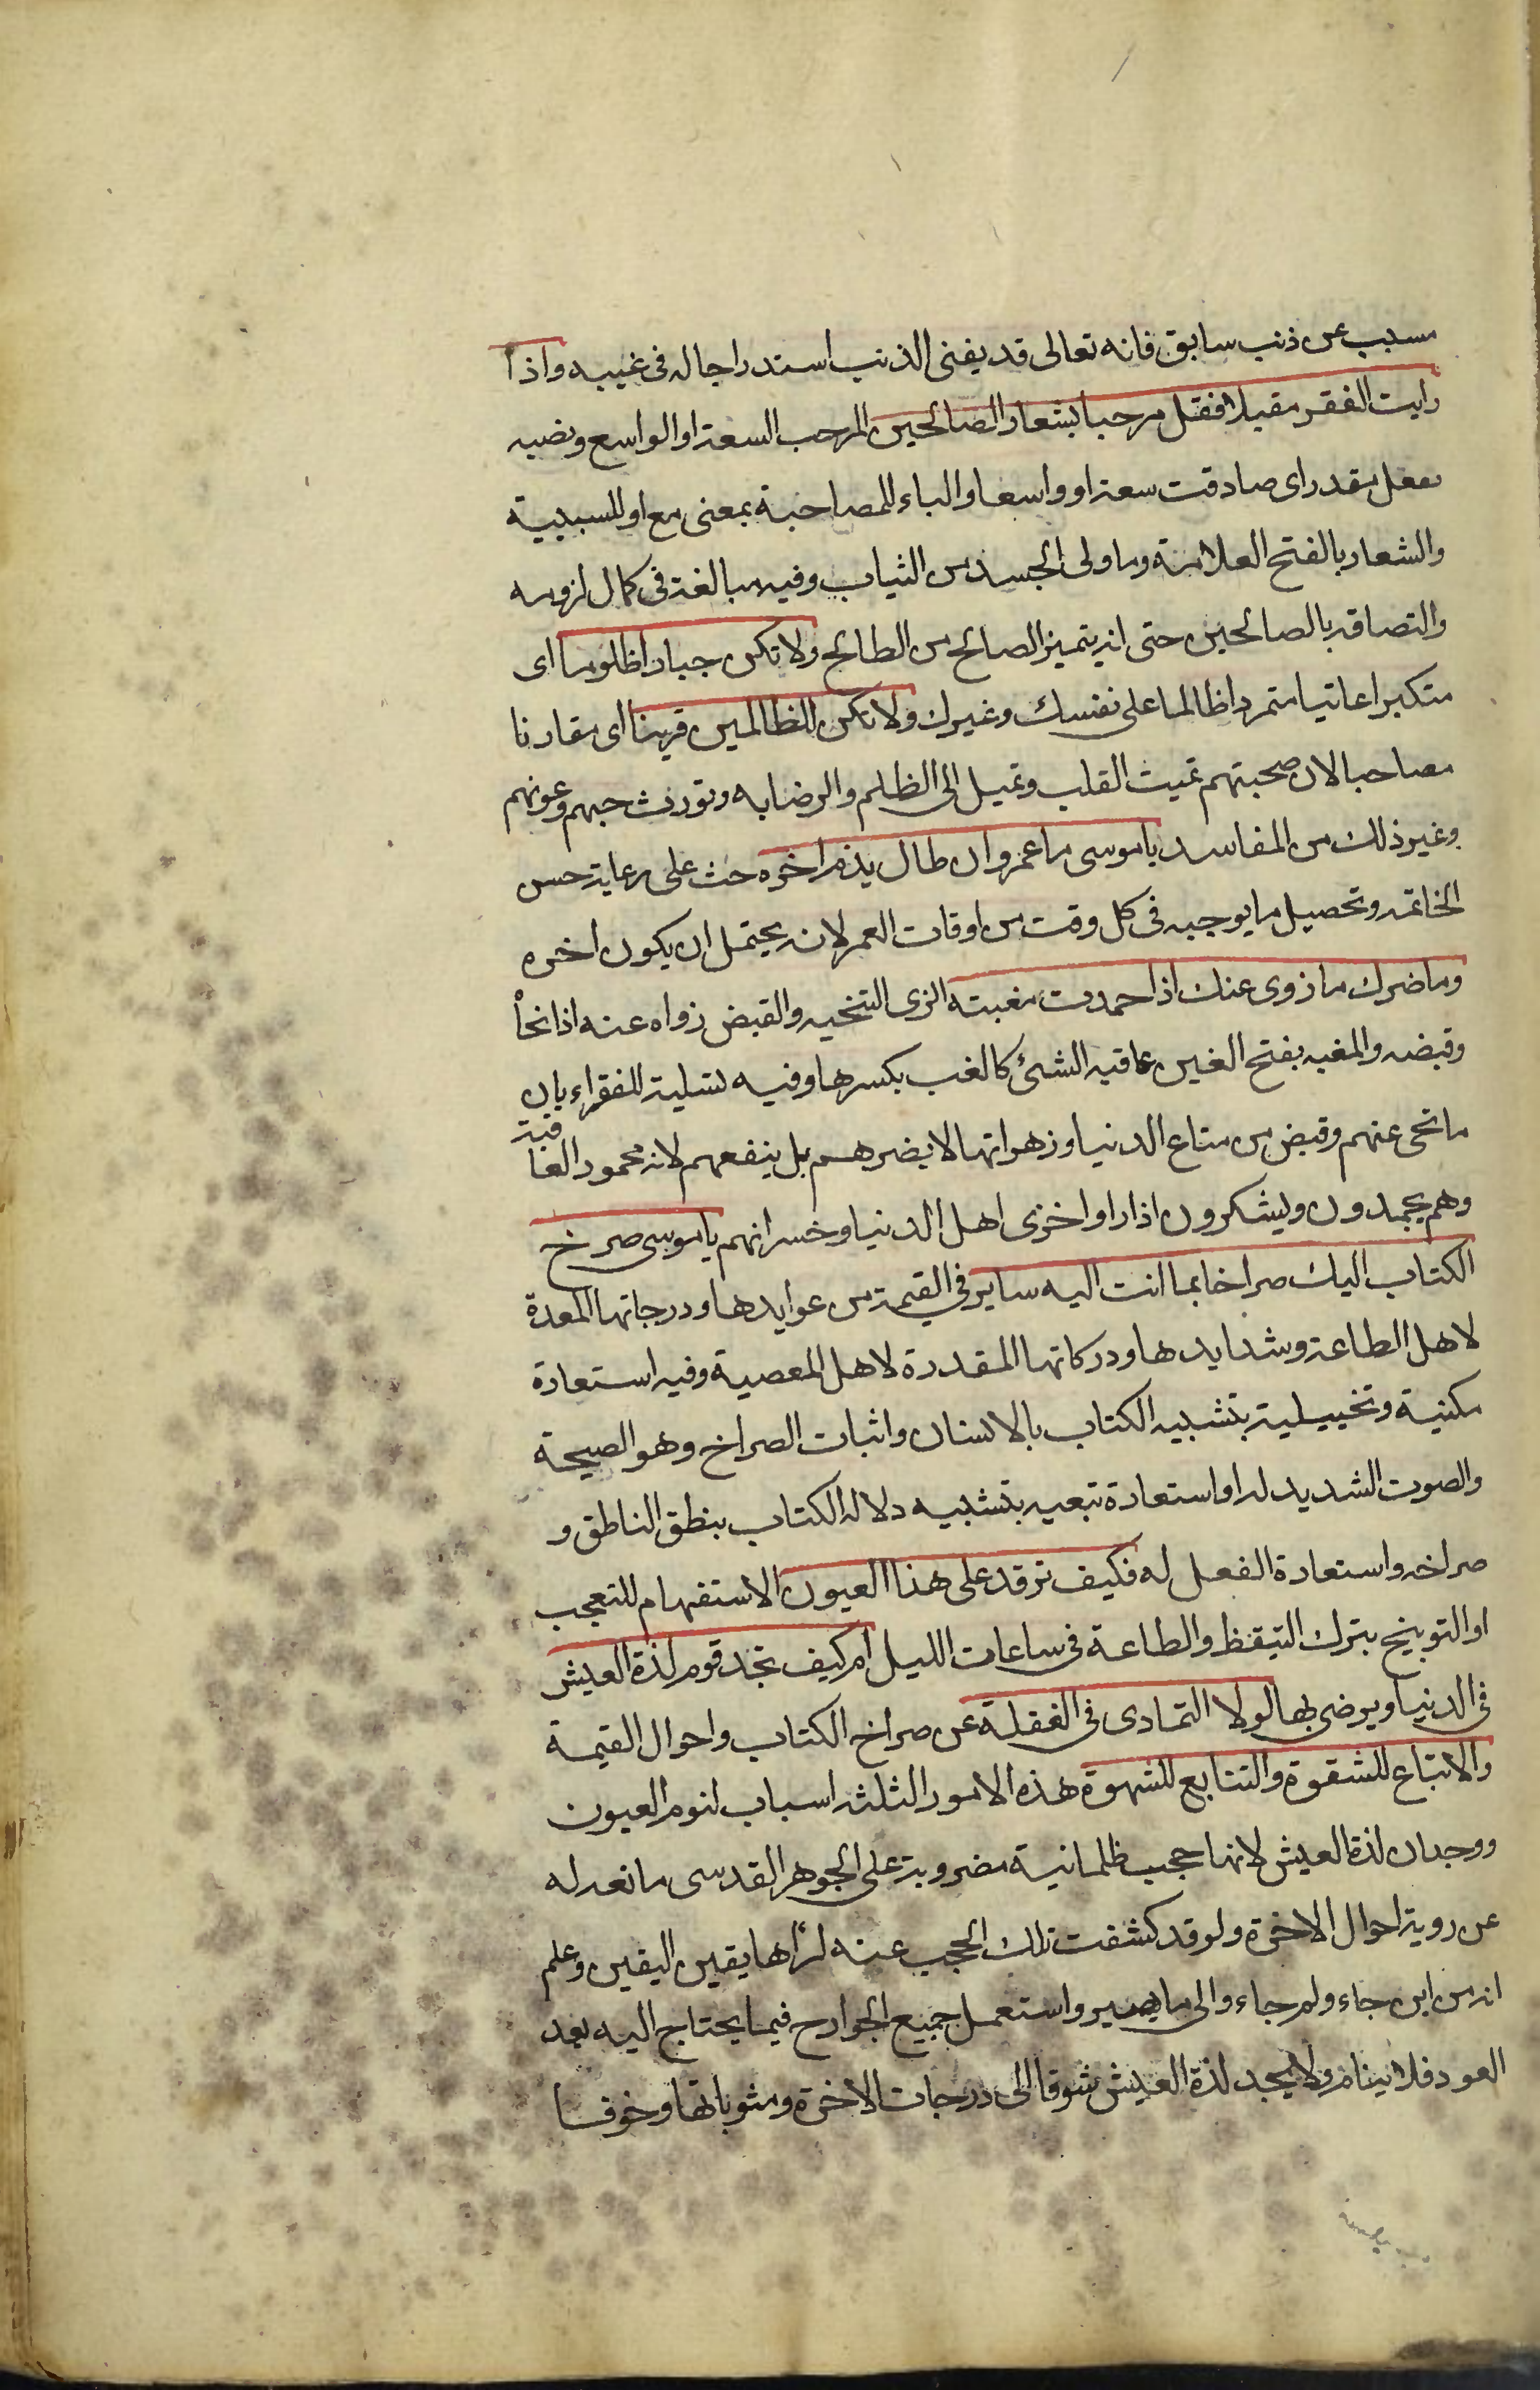 مسبب عن ذنب سابق فانه تعالى قد يغنى المذنب استدراجا له فى غيبه واذا
رايت الفقر مقبلا فقل مرحبا بشعار الصالحين المرحب السعة او الواسع ونصبه
بفعل مقدر اى صادفت سعة او واسعا والباء للمصاحبة بمعنى مع او للسببية
والشعار بالفتح العلامة وما ولى الجسد من الثياب وفيه مبالغة فى كمال لزومه
والتصاقه بالصالحين حتى انه يتميز الصالح من الطالح ولا تكن جبارا ظلوما اى
متكبرا عاتيا متمردا ظالما على نفسك وغيرك ولا تكن للظالمين قرينا اى مقارنا
مصاحبا لان صحبتهم تميت القلب وتميل الى الظلم والرضا به وتورث حبهم وعونهم
وغير ذلك من المفاسد يا موسى ما عمر وان طال يذم اخره حث على رعاية حسن
الخاتمه وتحصيل ما يوجبه فى كل وقت من اوقات العمر لانه يحتمل ان يكون اخره
وما ضرك ما زوى عنك اذا حمدت مغبته الزى التنحيه والقبض زواه عنه اذا نحاْ
وقبضه والمغبه بفتح الغين عاقبه الشئ كالغب بكسرها وفيه تسلية للفقراء بان
ما نحى عنهم وقبض من متاع الدنيا وزهراتها لا يضرهم بل ينفعهم لانه محمود العاقبة
وهم يحمدون ويشكرون اذا راوا خزى اهل الدنيا وخسرانهم يا موسى صرخ
الكتاب اليك صراخا بما انت اليه ساير فى القيمة من عوايدها ودرجاتها المعدة
لاهل الطاعة وشدايدها ودركاتها المقدرة لاهل المعصية وفيه استعارة
مكنية وتخييلية بتشبيه الكتاب بالانسان واثبات الصراخ وهو الصيحة
والصوت الشديد له او استعارة تبعيه بتشبيه دلاله الكتاب بنطق الناطق و
صراخه واستعارة الفعل له فكيف ترقد على هذا العيون الاستفهام للتعجب
او التوبيخ بترك التيقظ والطاعة فى ساعات الليل ام كيف تجد قوم لذة العيش
فى الدنيا ويرضى بها لولا التمادى فى الغفلة عن صراخ الكتاب واحوال القيمة
والاتباع للشقوة والتتابع للشهوة هذه الامور الثلثه اسباب لنوم العيون
ووجدان لذة العيش لانها حجب ظلمانية مضروبة على الجوهر القدسى مانعه له
عن روية احوال الاخرة ولو قد كشفت تلك الحجب عنه لرأها بقين اليقين وعلم
انه من اين جاء ولم جاء والى ما يصير واستعمل جميع الجوارح فيما يحتاج اليه بعد
العود فلا ينام ولا يجد لذة العيش شوقا الى درجات الاخرة ومثوباتها وخوفا